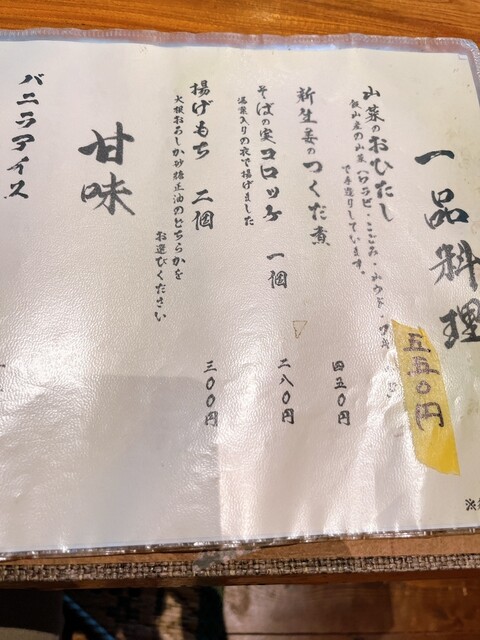 一品料理
山菜のおひたし
飯山産の山菜(ワラビ・こごみ・山ウド・フキ
で手造りしています。
五五〇円
新生姜のつくだ煮
四五〇円
そばの実コロッケ 一個
湯葉入りの衣で揚げました
二八〇円
揚げもち 二個
大根おろしか砂糖正油のどちらかを
お選びください
三〇〇円
甘味
バニラアイス